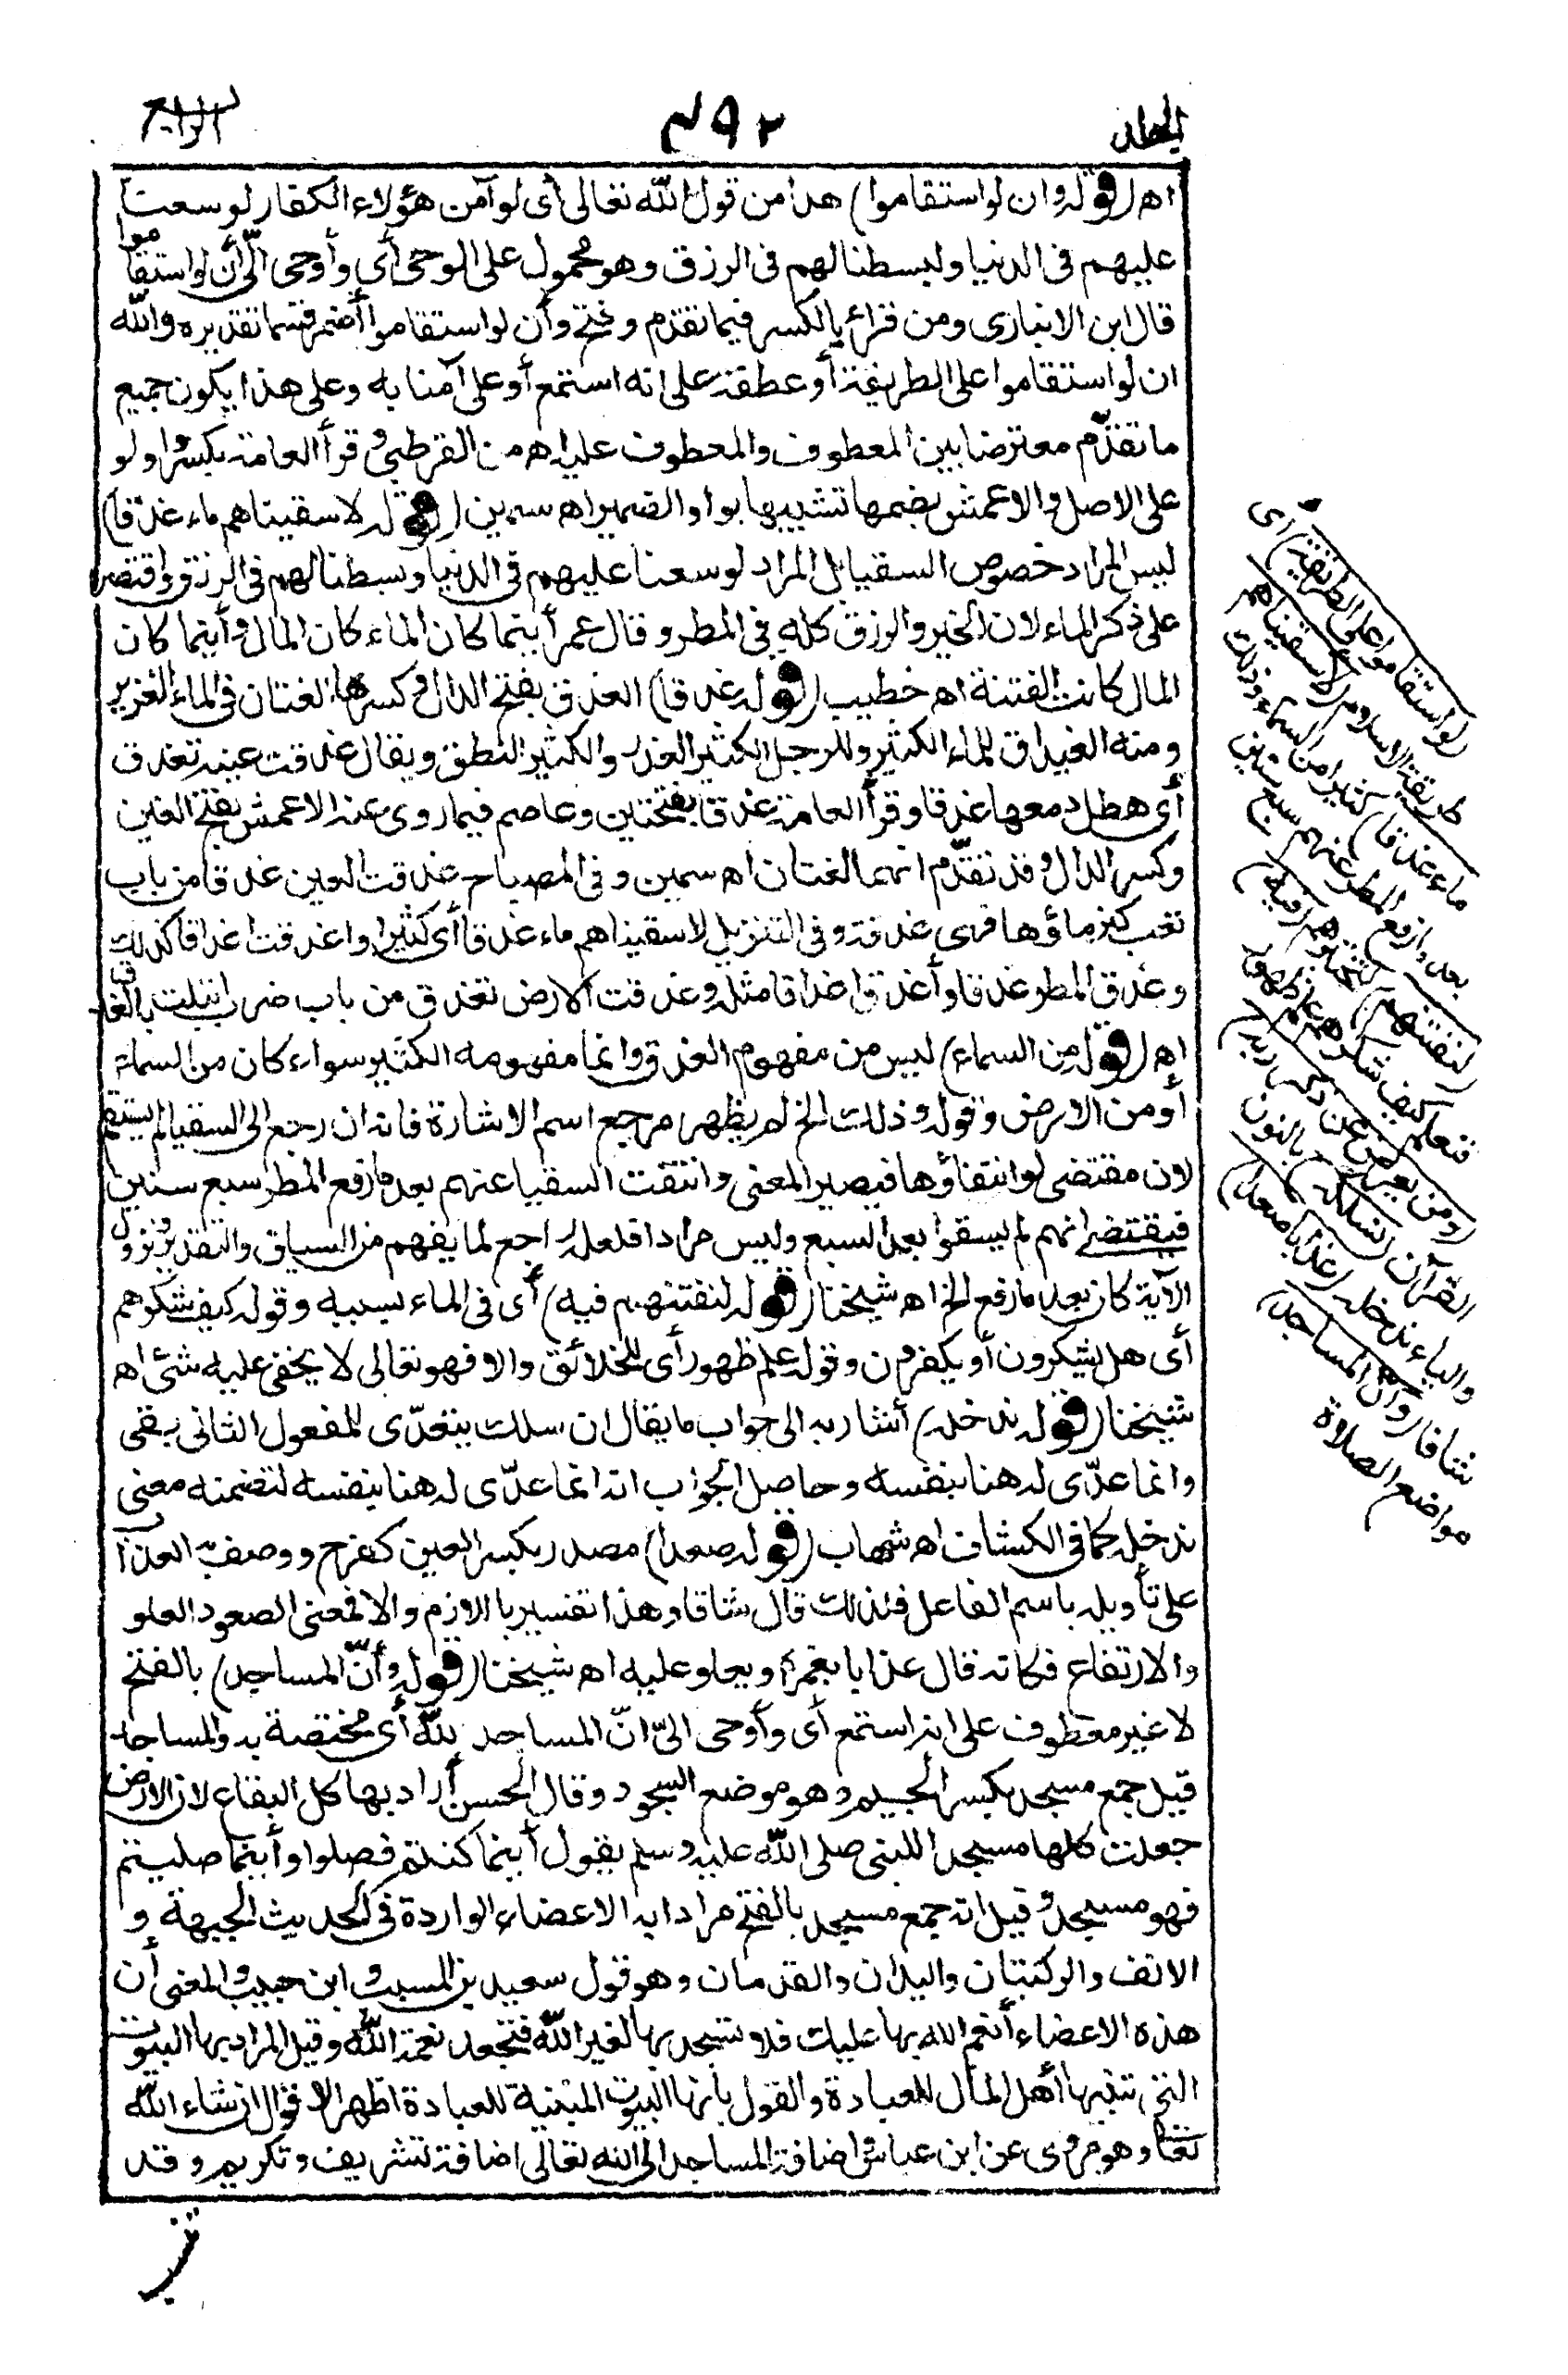 المجلد
٤٩٢
الرابع
اه (قوله وان لو استقاموا) هذا من قول الله تعالى أى لو آمن هؤلاء الكفار لوسعنا
عليهم فى الدنيا ولبسطنا لهم فى الرزق وهو محمول على الوحى أى وأوحى الىّ أن لو استقاموا
قال ابن الانبارى ومن قرأ بالكسر فيما تقدم وفتح وأن لو استقاموا أضمر قسما تقديره والله
ان لو استقاموا على الطريقة أو عطفه على انه استمع أو على آمنا به وعلى هذا يكون جميع
ما تقدّم معترضا بين المعطوف والمعطوف عليه اه من القرطبى وقرأ العامة بكسر واو لو
على الاصل والاعمش بضمها تشبيها بواو الضمير اه سمين (قوله لاسقيناهم ماء غدقا)
ليس المراد خصوص السقيا بل المراد لوسعنا عليهم فى الدنيا وبسطنا لهم فى الرزق واقتصر
على ذكر الماء لان الخير والرزق كله فى المطر وقال عمر أينما كان الماء كان المال وأينما كان
المال كانت الفتنة اه خطيب (قوله غدقا) الغدق بفتح الدال وكسرها لغتان فى الماء الغزير
ومنه الغيداق للماء الكثير وللرجل الكثير العذر والكثير النطق ويقال غدقت عينه تغدق
أى هطل دمعها غدقا وقرأ العامة غدقا بفتحتين وعاصم فيما روى عنه الاعمش بفتح الغين
وكسر الدال وقد تقدّم انهما لغتان اه سمين وفى المصباح غدقت العين غدقا من باب
تعب كثر ماؤها فهى غدقة وفى التنزيل لاسقيناهم ماء غدقا أى كثيرا واغدقت اغداقا كذلك
وغدق المطر غدقا وأغدق اغداقا مثله وغدقت الارض تغدق من باب ضرب ابتلت بالغدق
اه (قوله من السماء) ليس من مفهوم الغدق وانما مفهومه الكثير سواء كان من السماء
أو من الارض وقوله وذلك الخ لم يظهر مرجع اسم الاشارة فانه ان رجع الى السقيا لم يستقم
لان مقتضى لو انتفاؤها فيصير المعنى وانتفت السقيا عنهم بعد ما رفع المطر سبع سنين
فيقتضى انهم لم يسقوا بعد السبع وليس مرادا فلعله راجع لما يفهم من السياق والتقدير ونزول
الآية كان بعد ما رفع الخ اه شيخنا (قوله لنفتنهم فيه) أى فى الماء بسببه وقوله كيف شكرهم
أى هل يشكرون أو يكفرون وقوله علم ظهور أى للخلائق والا فهو تعالى لا يخفى عليه شئ اه
شيخنا (قوله ندخله) أشار به الى جواب ما يقال ان سلك يتعدّى للمفعول الثانى بفى
وانما عدّى له هنا بنفسه وحاصل الجواب انه انما عدّى له هنا بنفسه لتضمنه معنى
ندخله كما فى الكشاف اه شهاب (قوله صعدا) مصدر بكسر العين كفرح ووصف به العذاب
على تأويله باسم الفاعل فلذلك قال شاقا وهذا تفسير باللازم والا فمعنى الصعود العلو
والارتفاع فكانه قال عذابا يغمره ويعلو عليه اه شيخنا (قوله وأنّ المساجد) بالفتح
لا غير معطوف على انه استمع أى وأوحى الىّ انّ المساجد لله أى مختصة به والمساجد
قيل جمع مسجد بكسر الجيم وهو موضع السجود وقال الحسن أراد بها كل البقاع لان الارض
جعلت كلها مسجدا للنبى صلى الله عليه وسلم يقول أينما كنتم فصلوا وأينما صليتم
فهو مسجد وقيل انه جمع مسجد بالفتح مرادا به الاعضاء الواردة فى الحديث الجبهة و
الانف والركبتان واليدان والقدمان وهو قول سعيد بن المسيب وابن حبيب والمعنى أن
هذه الاعضاء أنعم الله بها عليك فلا تسجد بها لغير الله فتجحد نعمة الله وقيل المراد بها البيوت
التى تبنيها أهل الملل للعبادة والقول بأنها البيوت المبنية للعبادة اظهر الاقوال ان شاء الله
تعالى وهو مروى عن ابن عباس واضافة المساجد الى الله تعالى اضافة تشريف وتكريم وقد
لو استقاموا على الطريقة) أى
طريقة الاسلام (لاسقيناهم
ماء غدقا) كثيرا من السماء وذلك
بعد ما رفع المطر عنهم سبع سنين
(لنفتنهم) لنختبرهم (فيه)
فنعلم كيف شكرهم علم ظهور
(ومن يعرض عن ذكر ربه)
القرآن (نسلكه) بالنون
والياء ندخله (عذابا صعدا)
شاقا (وأن المساجد)
مواضع الصلاة